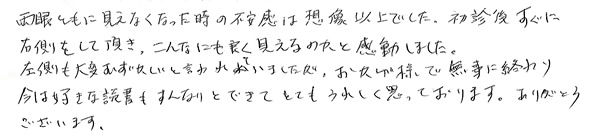 両眼ともに見えなくなった時の不安感は想像以上でした。初診後すぐに
右側をして頂き、こんなにも良く見えるのかと感動しました。
左側も大変むずかしいと言われていましたが、おかげ様で無事に終わり
今は好きな読書もすんなりとできてとてもうれしく思っております。ありがとう
ございます。